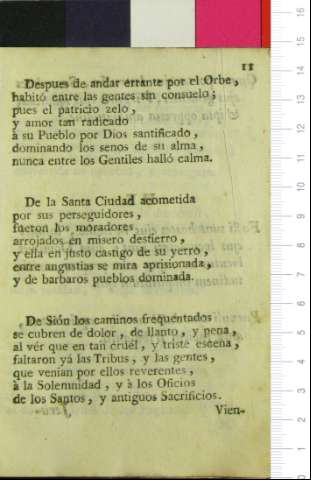 11
Despues de andar errante por el Orbe,
habitó entre las gentes sin consuelo;
pues el patricio zelo,
y amor tan radicado
à su Pueblo por Dios santificado,
dominando los senos de su alma,
nunca entre los Gentiles halló calma.
De la Santa Ciudad acometida
por sus perseguidores,
fueron los moradores
arrojados en misero destierro,
y ella en justo castigo de su yerro,
entre angustias se mira aprisionada,
y de barbaros pueblos dominada.
De Sión los caminos frequentados
se cubren de dolor, de llanto, y pena,
al vér que en tan cruél, y triste escena,
faltaron yá las Tribus, y las gentes,
que venian por ellos reverentes,
à la Solemnidad, y à los Oficios
de los Santos, y antiguos Sacrificios.
Vien-
1
2
3
4
5
6
7
8
9
10
11
12
13
14
15
16